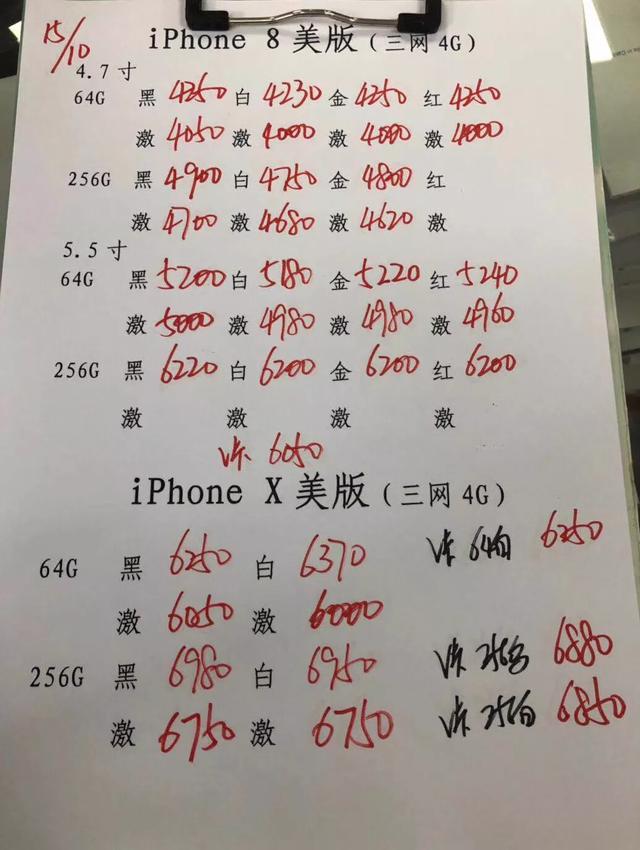 15/10
iPhone 8 美版（三网 4G）
4.7 寸
64G 黑 4250 白 4230 金 4250 红 4250
激 4050 激 4000 激 4000 激 4000
256G 黑 4900 白 4750 金 4800 红
激 4700 激 4680 激 4620 激
5.5 寸
64G 黑 5200 白 5180 金 5220 红 5240
激 5000 激 4980 激 4980 激 4960
256G 黑 6220 白 6200 金 6200 红 6200
激 激 激 激
卡 6050
iPhone X 美版（三网 4G）
64G 黑 6250 白 6370 卡 64白 6250
激 6050 激 6000
256G 黑 6980 白 6950 卡 256 6880
激 6750 激 6750 卡 256白 6850